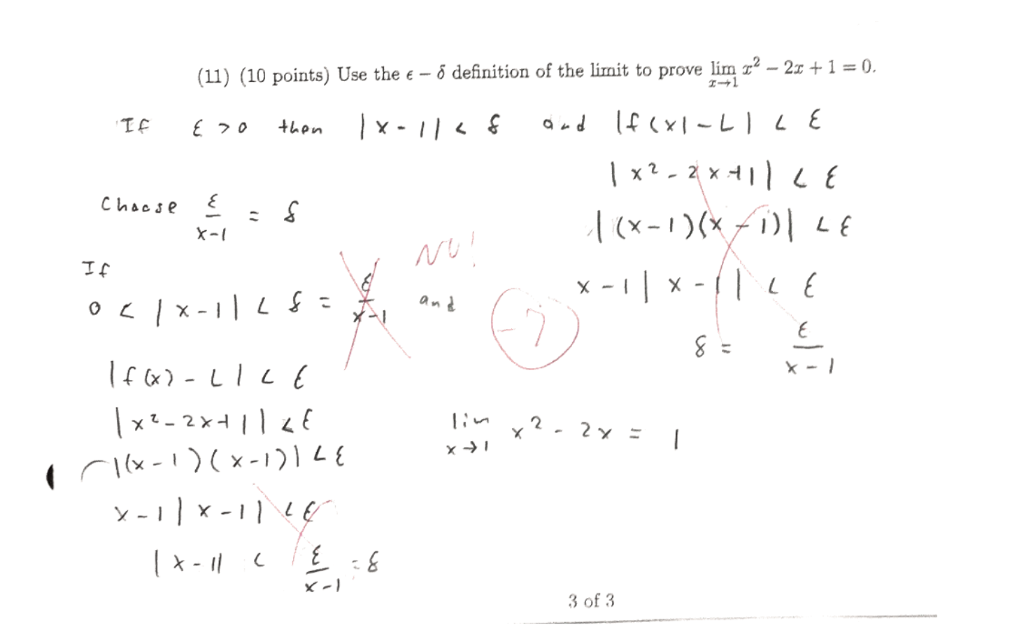 (11) (10 points) Use the ϵ − δ definition of the limit to prove lim x→1 x² − 2x + 1 = 0.
If ε > 0 then |x - 1| < δ and |f(x) - L| < ε
|x² - 2x + 1| < ε
Choose ε/(x-1) = δ
|(x-1)(x-1)| < ε
NO!
If
0 < |x-1| < δ = ε/(x-1) and
x-1|x-1| < ε
-7
δ = ε/(x-1)
|f(x) - L| < ε
|x² - 2x + 1| < ε
lim x→1 x² - 2x = 1
|(x-1)(x-1)| < ε
x-1|x-1| < ε
|x-1| < ε/(x-1) = δ
3 of 3